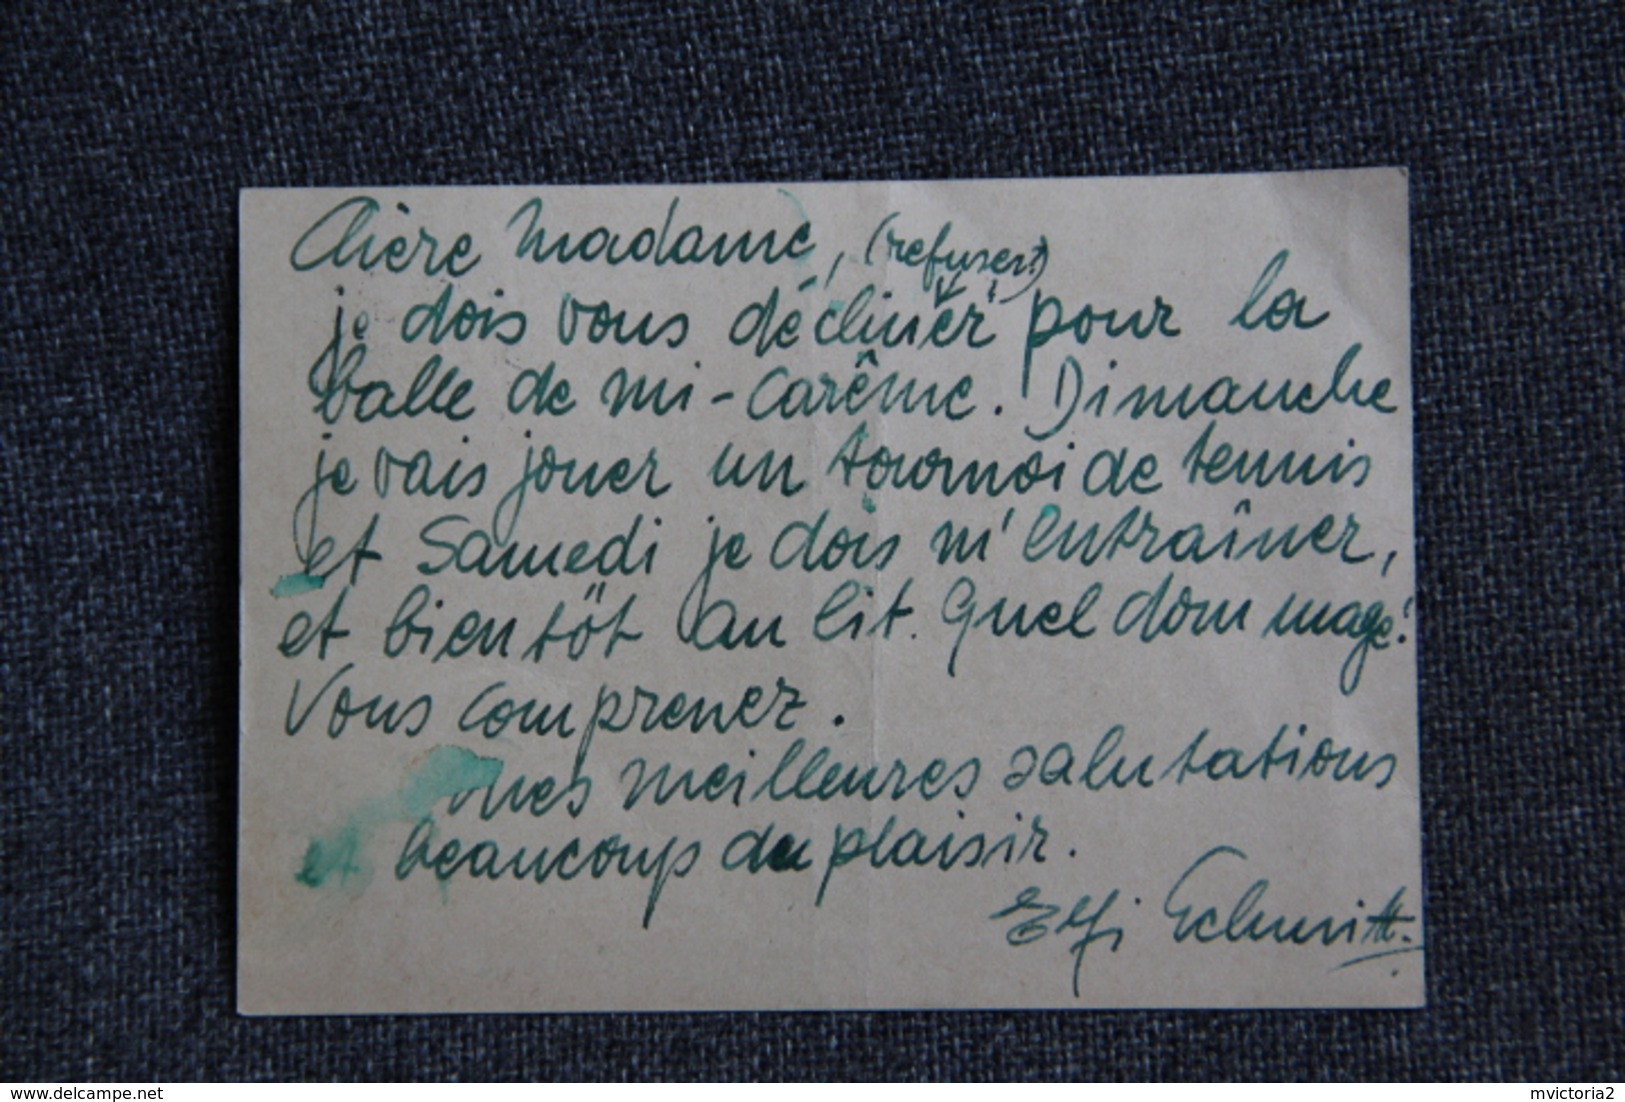 Chère Madame, (refuser?)
je dois vous décliner pour la
balle de mi-carême. Dimanche
je vais jouer un tournoi de tennis
et Samedi je dois m'entraîner,
et bientôt au lit. Quel dommage!
Vous comprenez.
mes meilleures salutations
et beaucoup du plaisir.
Elfi Schmitt.
delcampe.net
mvictoria2